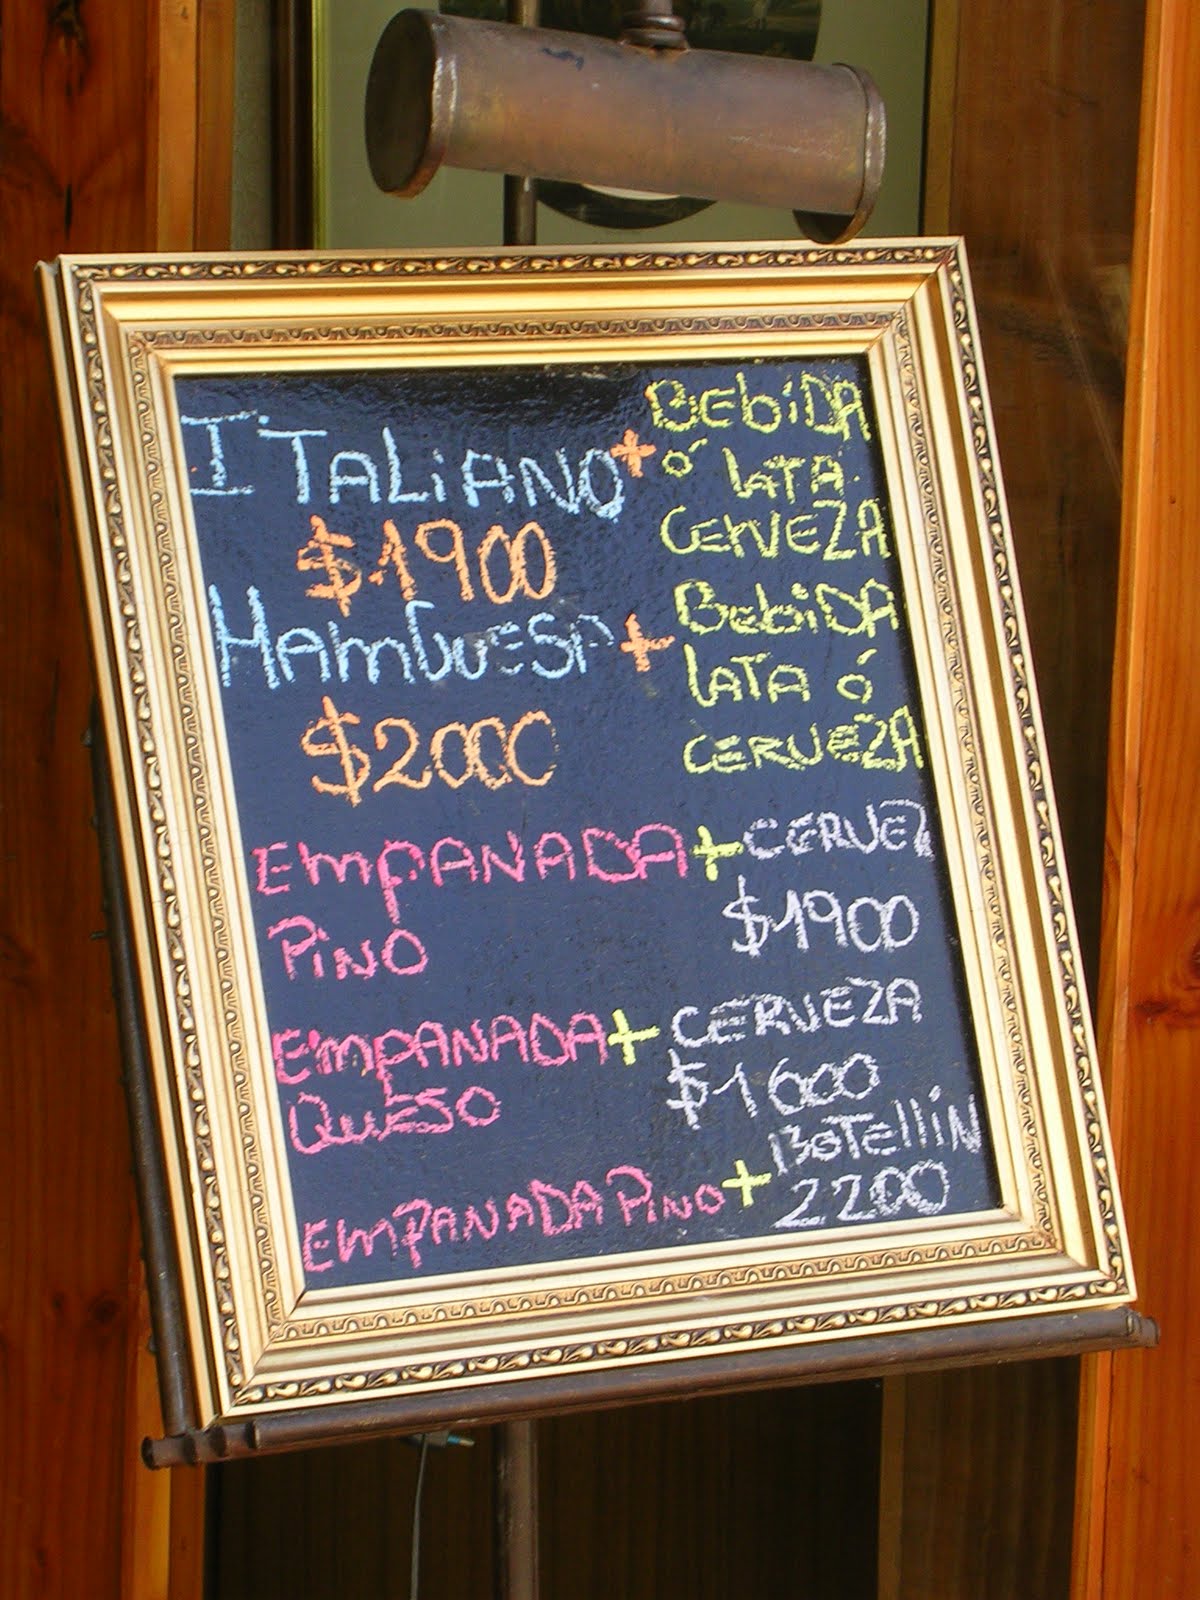 ITALIANO + BEBIDA
ó LATA
CERVEZA
$1900
HAMBUESA + BEBIDA
LATA ó
CERVEZA
$2000
EMPANADA + CERVEZ
PINO $1900
EMPANADA + CERVEZA
QUESO $1600
EMPANADA PINO + BOTELLIN
2200